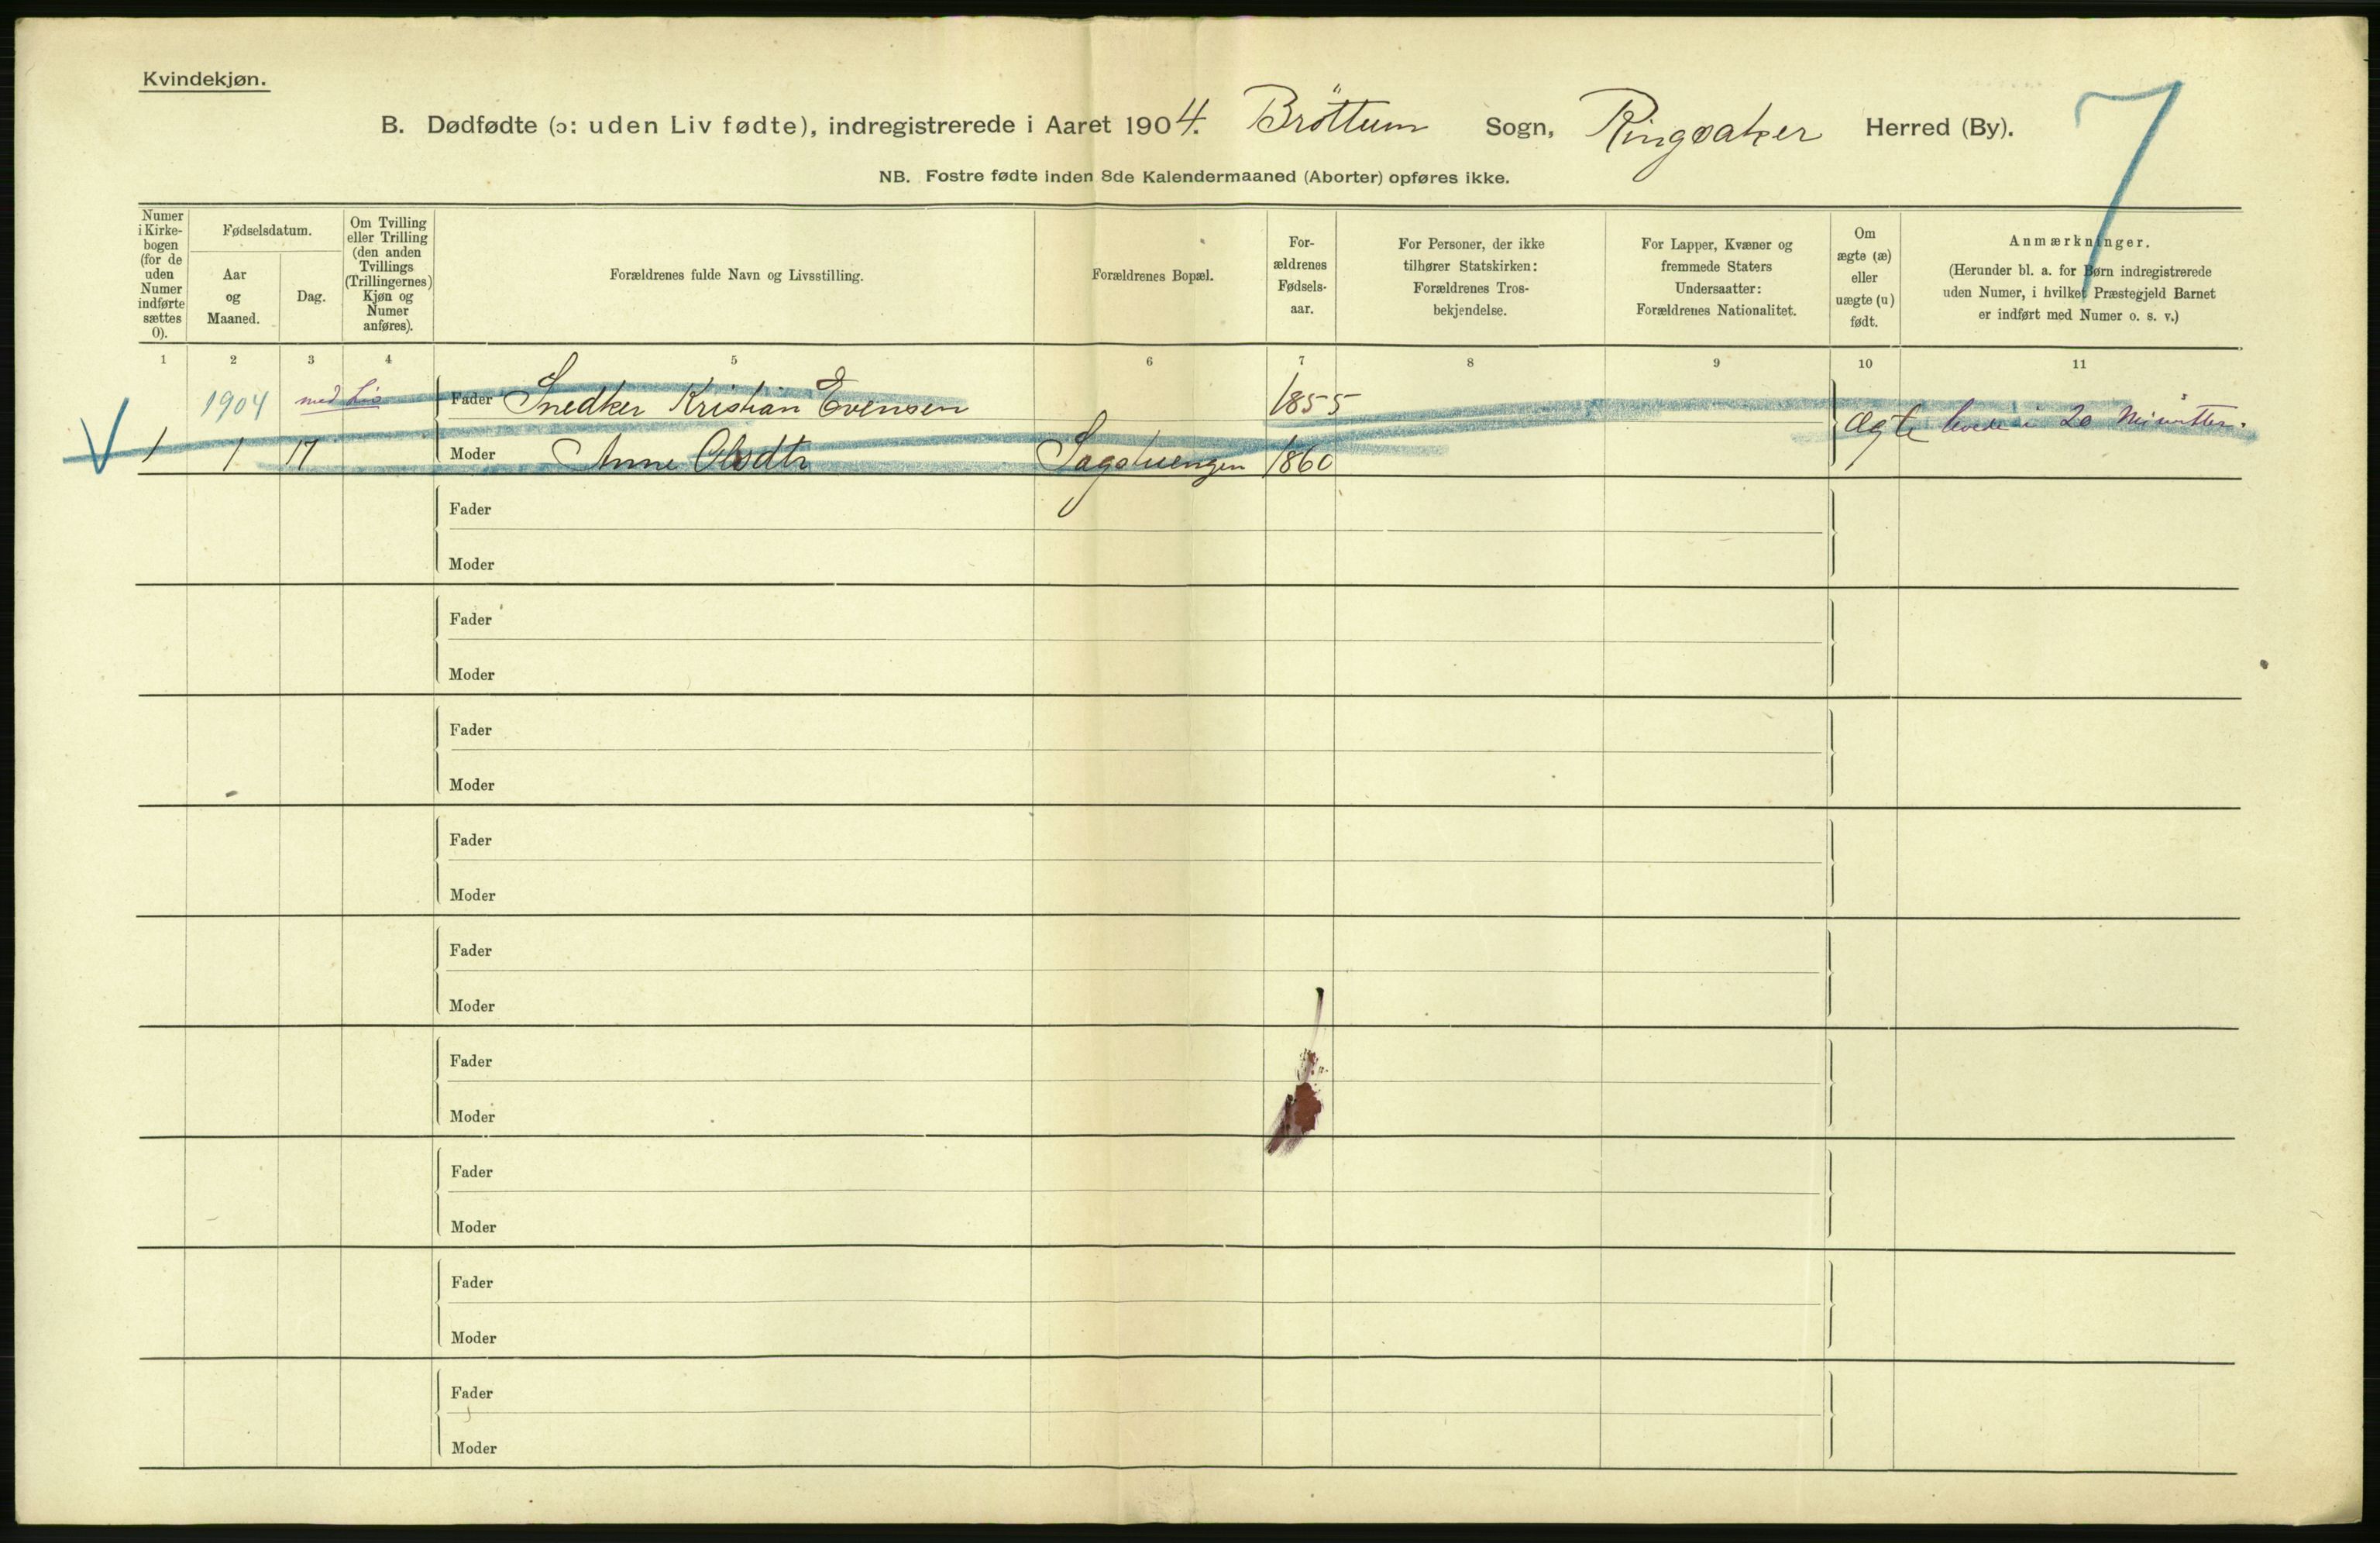 Kvindekjøn.
B. Dødfødte (ɔ: uden Liv fødte), indregistrerede i Aaret 1904. Bröttum Sogn, Ringsaker Herred (By).
7
NB. Fostre fødte inden 8de Kalendermaaned (Aborter) opføres ikke.
Numer i Kirke-bogen (for de uden Numer indførte sættes 0).
Fødselsdatum.
Aar og Maaned.
Dag.
Om Tvilling eller Trilling (den anden Tvillings (Trillingernes) Kjøn og Numer anføres).
Forældrenes fulde Navn og Livsstilling.
Forældrenes Bopæl.
For-ældrenes Fødsels-aar.
For Personer, der ikke tilhører Statskirken: Forældrenes Tros-bekjendelse.
For Lapper, Kvæner og fremmede Staters Undersaatter: Forældrenes Nationalitet.
Om ægte (æ) eller uægte (u) født.
Anmærkninger.
(Herunder bl. a. for Børn indregistrerede uden Numer, i hvilket Præstegjeld Barnet er indført med Numer o. s. v.)
1 2 3 4 5 6 7 8 9 10 11
1904 med Liv Fader Snedker Kristian Evensen 1855
Ægte levede i 20 Minutter.
1 1 17 Moder Anne Olsdtr Sagstuengen 1860
Fader
Moder
Fader
Moder
Fader
Moder
Fader
Moder
Fader
Moder
Fader
Moder
Fader
Moder
Fader
Moder
Fader
Moder